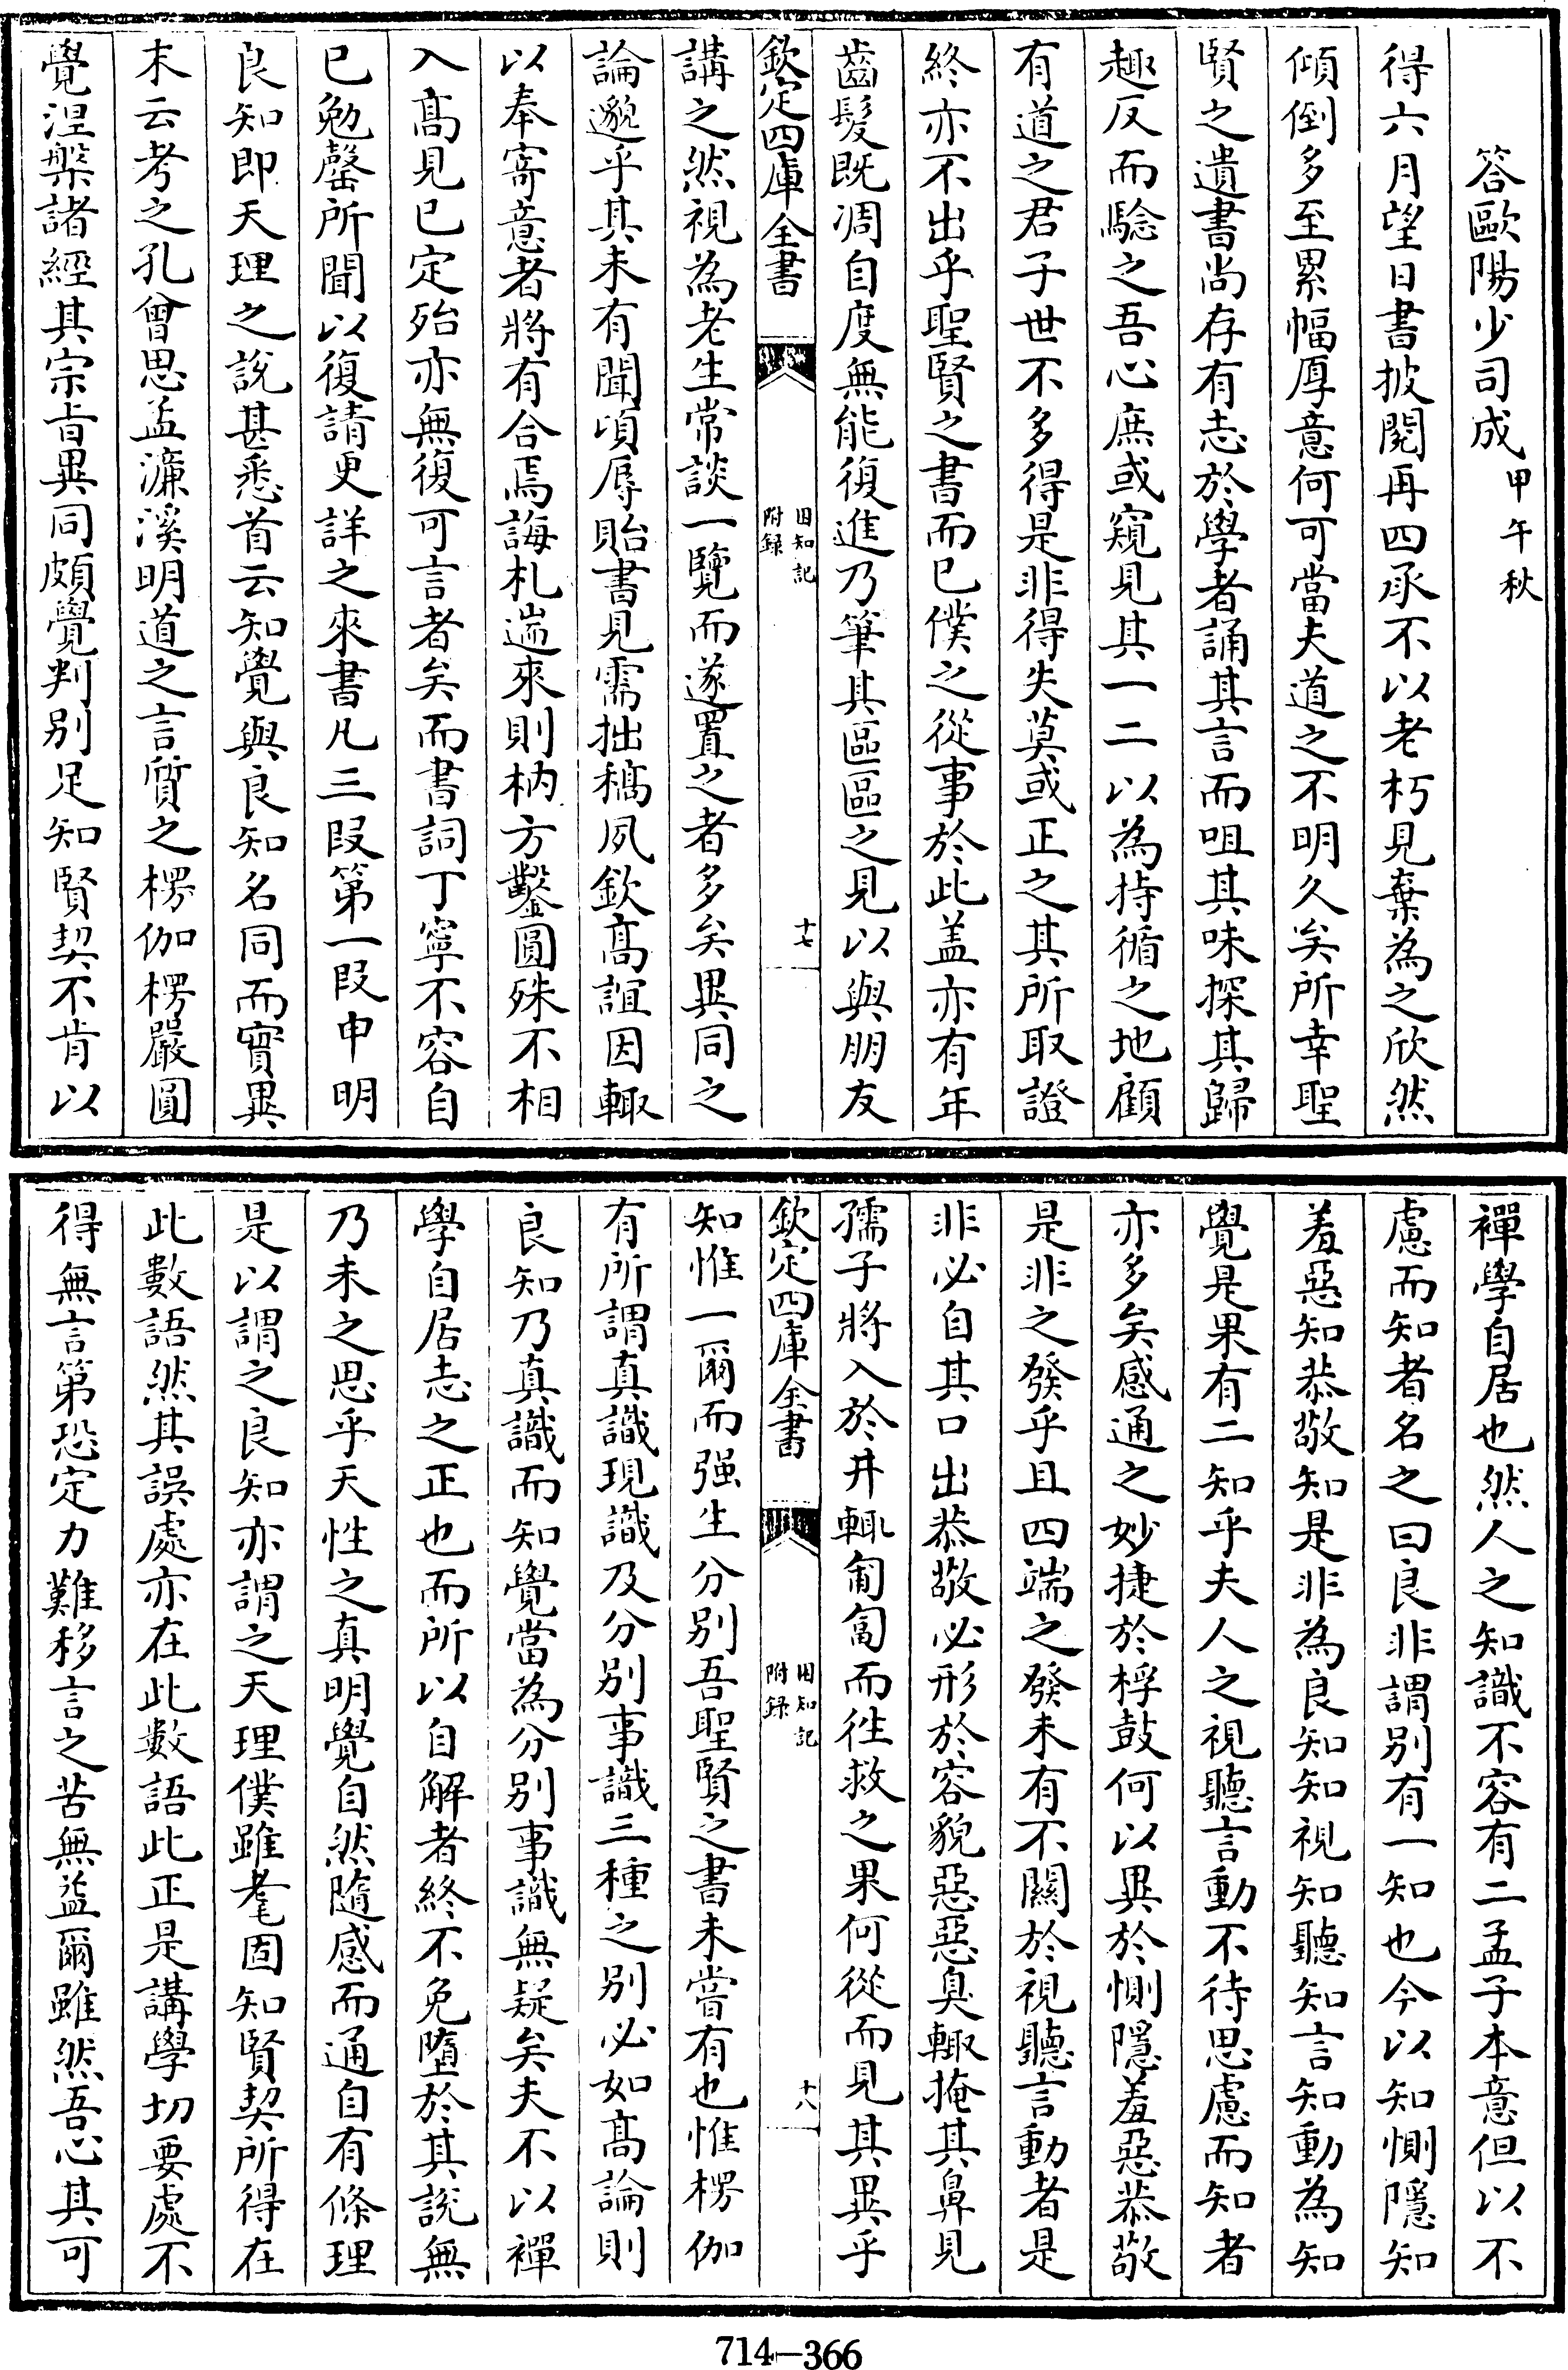 答歐陽少司成甲午秋
得六月望日書披閱再四承不以老朽見棄為之欣然
傾倒多至累幅厚意何可當夫道之不明久矣所幸聖
賢之遺書尚存有志於學者誦其言而咀其味探其歸
趣反而驗之吾心庶或窺見其一二以為持循之地顧
有道之君子世不多得是非得失莫或正之其所取證
終亦不出乎聖賢之書而已僕之從事於此盖亦有年
齒髮既凋自度無能復進乃筆其區區之見以與朋友
欽定四庫全書
困知記
附録
十七
講之然視為老生常談一覽而遂置之者多矣異同之
論邈乎其未有聞頃辱貽書見需拙稿夙欽高誼因輙
以奉寄意者將有合焉誨札遄來則枘方鑿圓殊不相
入高見已定殆亦無復可言者矣而書詞丁寧不容自
已勉罄所聞以復請更詳之來書凡三叚第一叚申明
良知即天理之說甚悉首云知覺與良知名同而實異
末云考之孔曾思孟濂溪明道之言質之楞伽楞嚴圓
覺涅槃諸經其宗旨異同頗覺判别足知賢契不肯以
禪學自居也然人之知識不容有二孟子本意但以不
慮而知者名之曰良非謂别有一知也今以知惻隱知
羞惡知恭敬知是非為良知知視知聽知言知動為知
覺是果有二知乎夫人之視聽言動不待思慮而知者
亦多矣感通之妙捷於桴鼓何以異於惻隱羞惡恭敬
是非之發乎且四端之發未有不關於視聽言動者是
非必自其口出恭敬必形於容貌惡惡臭輙掩其鼻見
孺子將入於井輙匍匐而徃救之果何從而見其異乎
欽定四庫全書
困知記
附録
十八
知惟一爾而强生分别吾聖賢之書未嘗有也惟楞伽
有所謂真識現識及分别事識三種之别必如高論則
良知乃真識而知覺當為分别事識無疑矣夫不以禪
學自居志之正也而所以自解者終不免墮於其說無
乃未之思乎天性之真明覺自然隨感而通自有條理
是以謂之良知亦謂之天理僕雖耄固知賢契所得在
此數語然其誤處亦在此數語此正是講學切要處不
得無言第恐定力難移言之苦無益爾雖然吾心其可
714-366